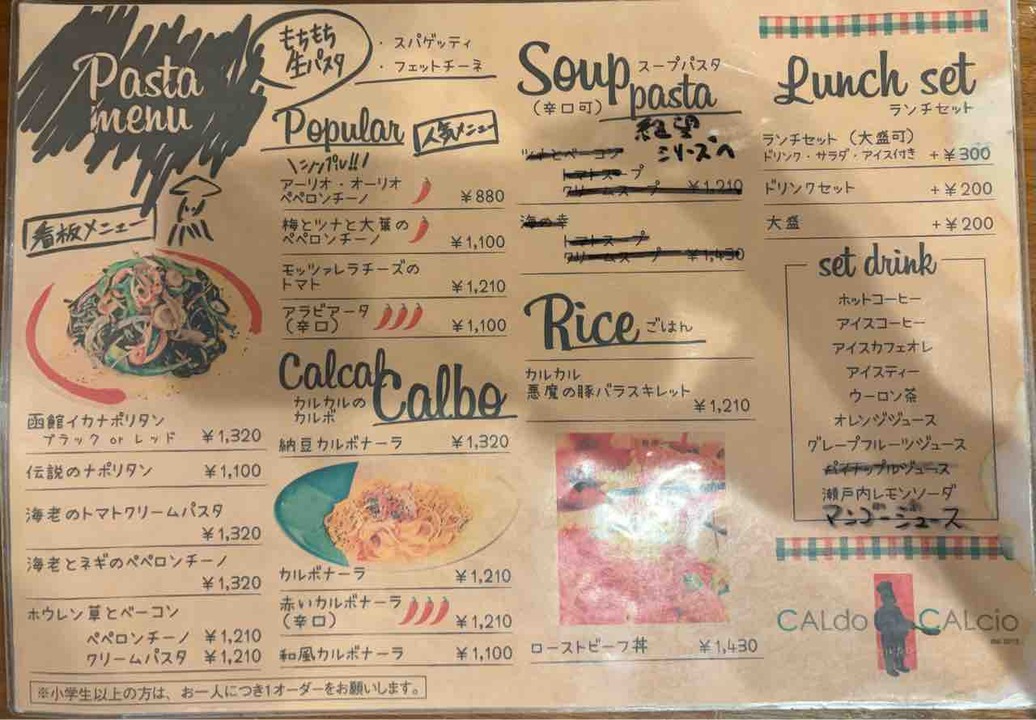 Pasta
menu
もちもち
生パスタ
・スパゲッティ
・フェットチーネ
看板メニュー
函館イカナポリタン
ブラック or レッド ¥1,320
伝説のナポリタン ¥1,100
海老のトマトクリームパスタ
¥1,320
海老とネギのペペロンチーノ
¥1,320
ホウレン草とベーコン
ペペロンチーノ ¥1,210
クリームパスタ ¥1,210
※小学生以上の方は、お一人につき1オーダーをお願いします。
Popular 人気メニュー
\シンプル!!/
アーリオ・オーリオ
ペペロンチーノ ¥880
梅とツナと大葉の
ペペロンチーノ ¥1,100
モッツァレラチーズの
トマト ¥1,210
アラビアータ
(辛口) ¥1,100
Calcal
Calbo
カルカルの
カルボ
納豆カルボナーラ ¥1,320
カルボナーラ ¥1,210
赤いカルボナーラ
(辛口) ¥1,210
和風カルボナーラ ¥1,100
Soup スープパスタ
pasta
(辛口可)
絶望
シリーズへ
ツナとベーコン
トマトスープ
クリームスープ ¥1,210
海の幸
トマトスープ
クリームスープ ¥1,430
Rice ごはん
カルカル
悪魔の豚バラスキレット
¥1,210
ローストビーフ丼 ¥1,430
Lunch set
ランチセット
ランチセット(大盛可)
ドリンク・サラダ・アイス付き +¥300
ドリンクセット +¥200
大盛 +¥200
set drink
ホットコーヒー
アイスコーヒー
アイスカフェオレ
アイスティー
ウーロン茶
オレンジジュース
グレープフルーツジュース
パイナップルジュース
瀬戸内レモンソーダ
マンゴージュース
CALdo CALcio